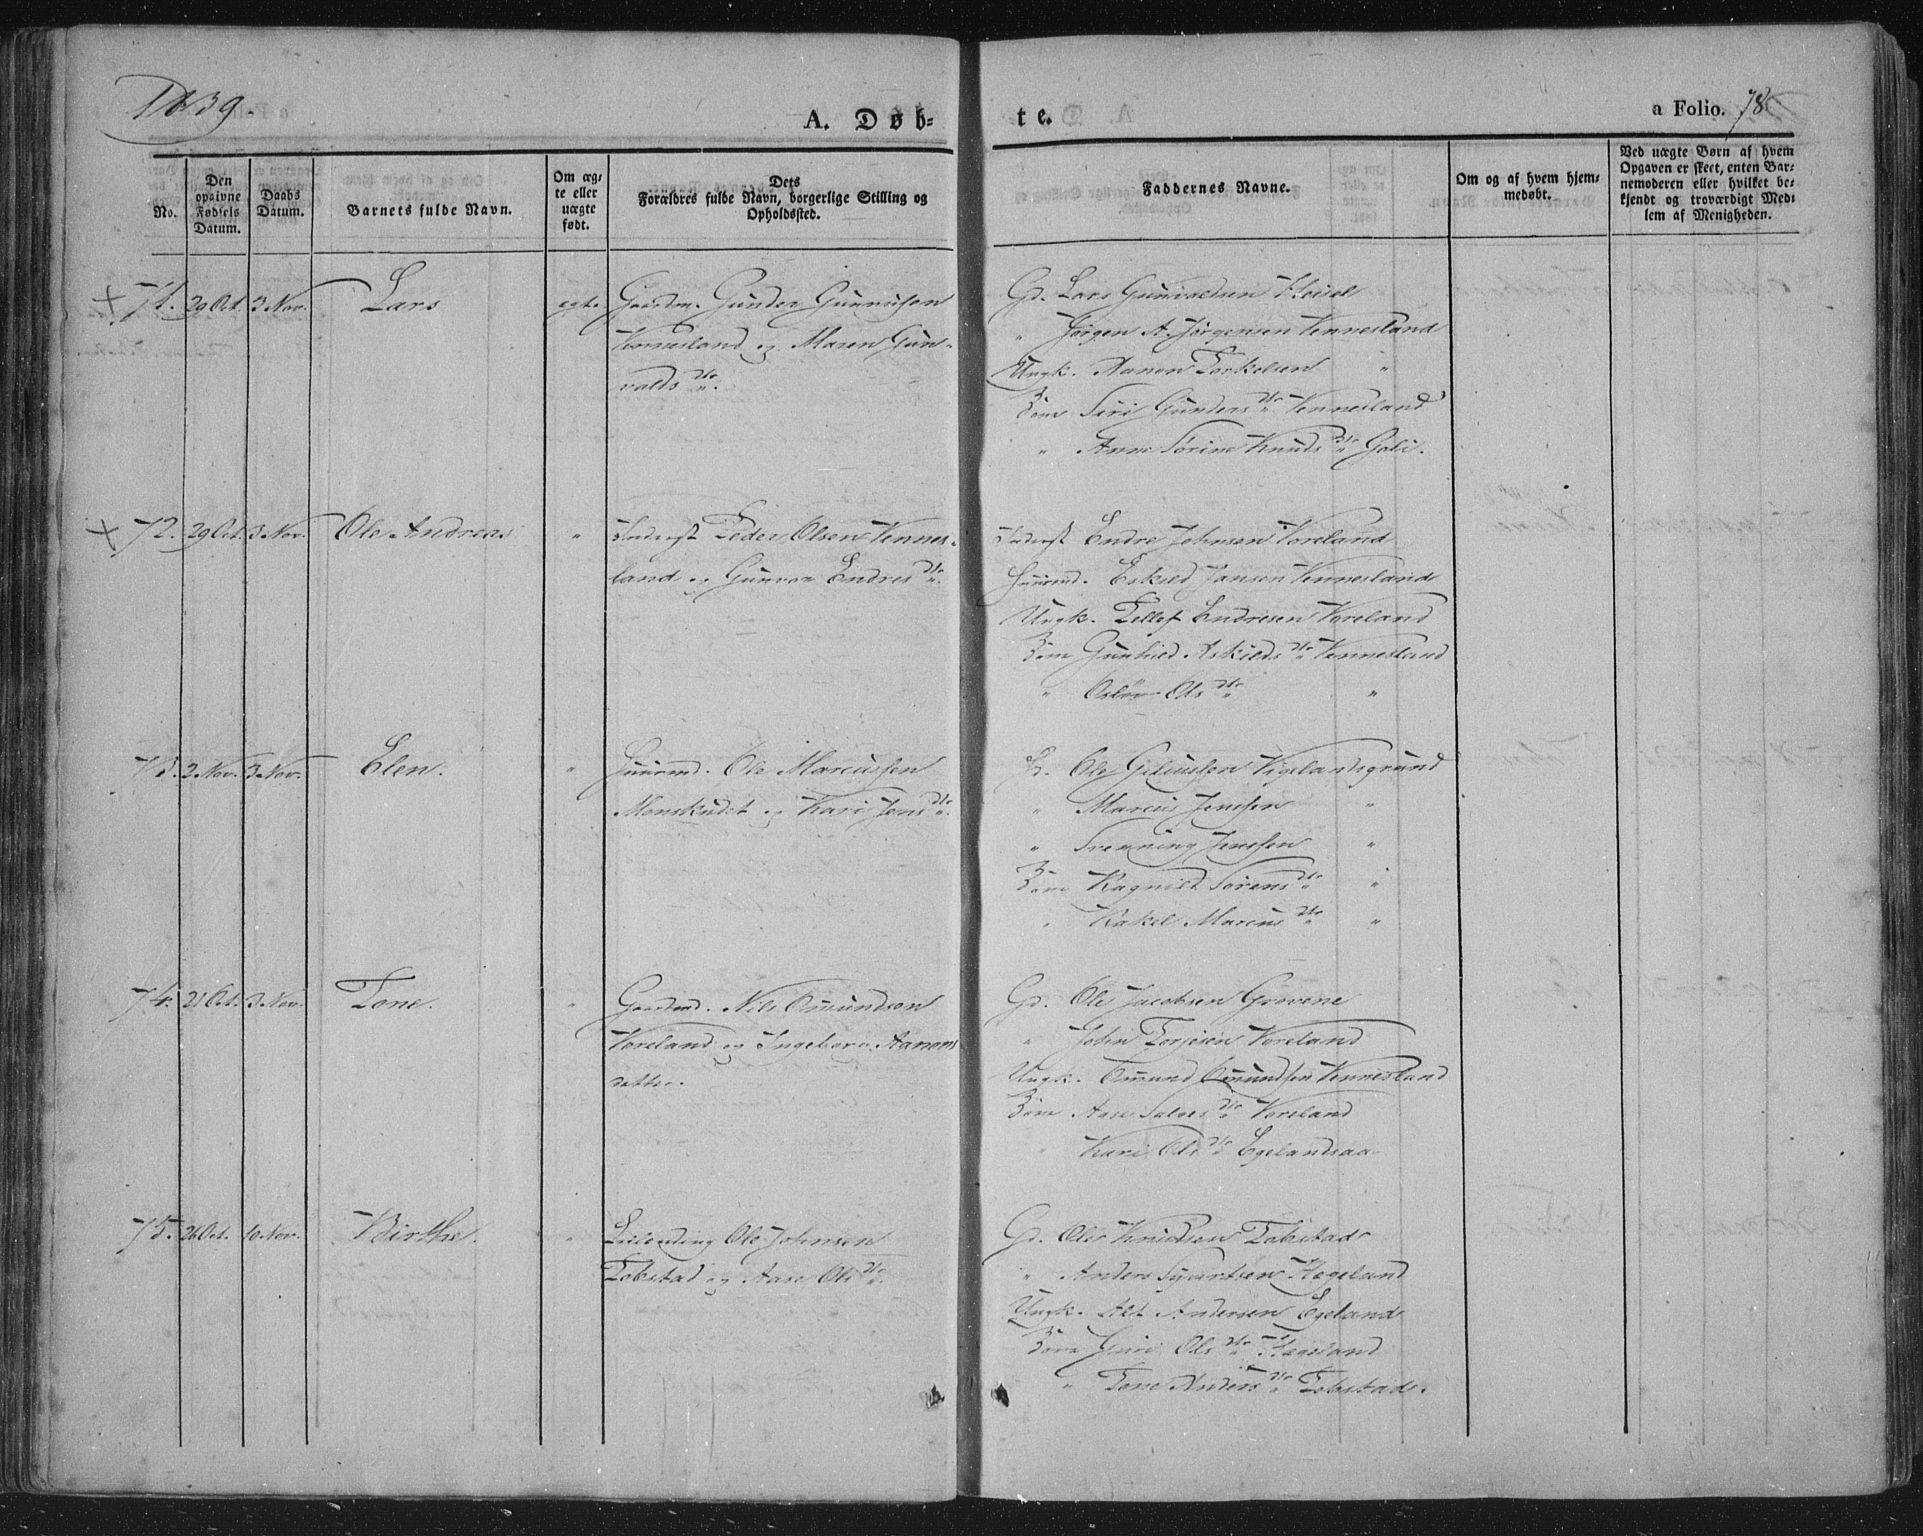 1839.
A. Døb-
te.
a Folio. 78
No.
Den opgivne Fødsels Datum.
Daabs Datum.
Barnets fulde Navn.
Om æg-
te eller
uægte
født.
Dets
Forældres fulde Navn, borgerlige Stilling og
Opholdssted.
Faddernes Navne.
Om og af hvem hjem-
medøbt.
Ved uægte Børn af hvem
Opgaven er skeet, enten Bar-
nemoderen eller hvilket be-
kjendt og troværdigt Med-
lem af Menigheden.
+ 71. 29 Oct. 3 Nov. Lars ægte Gaardm. Gunder Gunnufsen
Vennesland og Maren Gun-
valds dtr.
Gd. Lars Gunvaldsen
" Jørgen A. Jørgensen Vennesland
Ungk. Aanon Torkelsen "
Siri Gunders dtr Vennesland
" Anne Sørine Knuds dtr
+ 72. 29 Oct. 3 Nov. Ole Andreas " Inderst Peder Olsen Vennes-
land og Gunvor Endres dtr.
Inderst Endre Johnsen Voreland
Huusmd. Eskild Jansen Vennesland
Ungk. Tellef Endresen Voreland
Gunhild Askilds dtr Vennesland
" Ols dtr "
73. 2 Nov. 3 Nov. Elen. " Huusmd. Ole Marcussen
Monskudet og Kari Jens dtr.
Ole Vigelandsgrund
" Marcus Jenssen "
" Jenssen "
Ragnild Sørens dtr "
" Rakel Marcus dtr "
74. 21 Oct. 3 Nov. Tone. " Gaardmd. Nils Omundsen
Voreland og Ingeborg Aanons
datter.
Gd. Ole Jacobsen Grovene
" John Torjesen Voreland
Ungk. Omund Omundsen Vennesland
Aase Salves dtr Voreland
Kari Ols dtr Egelandsaa
75. 26 Oct. 10 Nov. Birthe. " Ole Johnsen
Tobstad og Aase Ols dtr.
Gd. Ole Knudsen Tobstad
" Anders Syvertsen Hægeland
Ungk. Alt Andersen Egeland
Guri Ols dtr Hægeland
" Tone Anders dtr Tobstad.